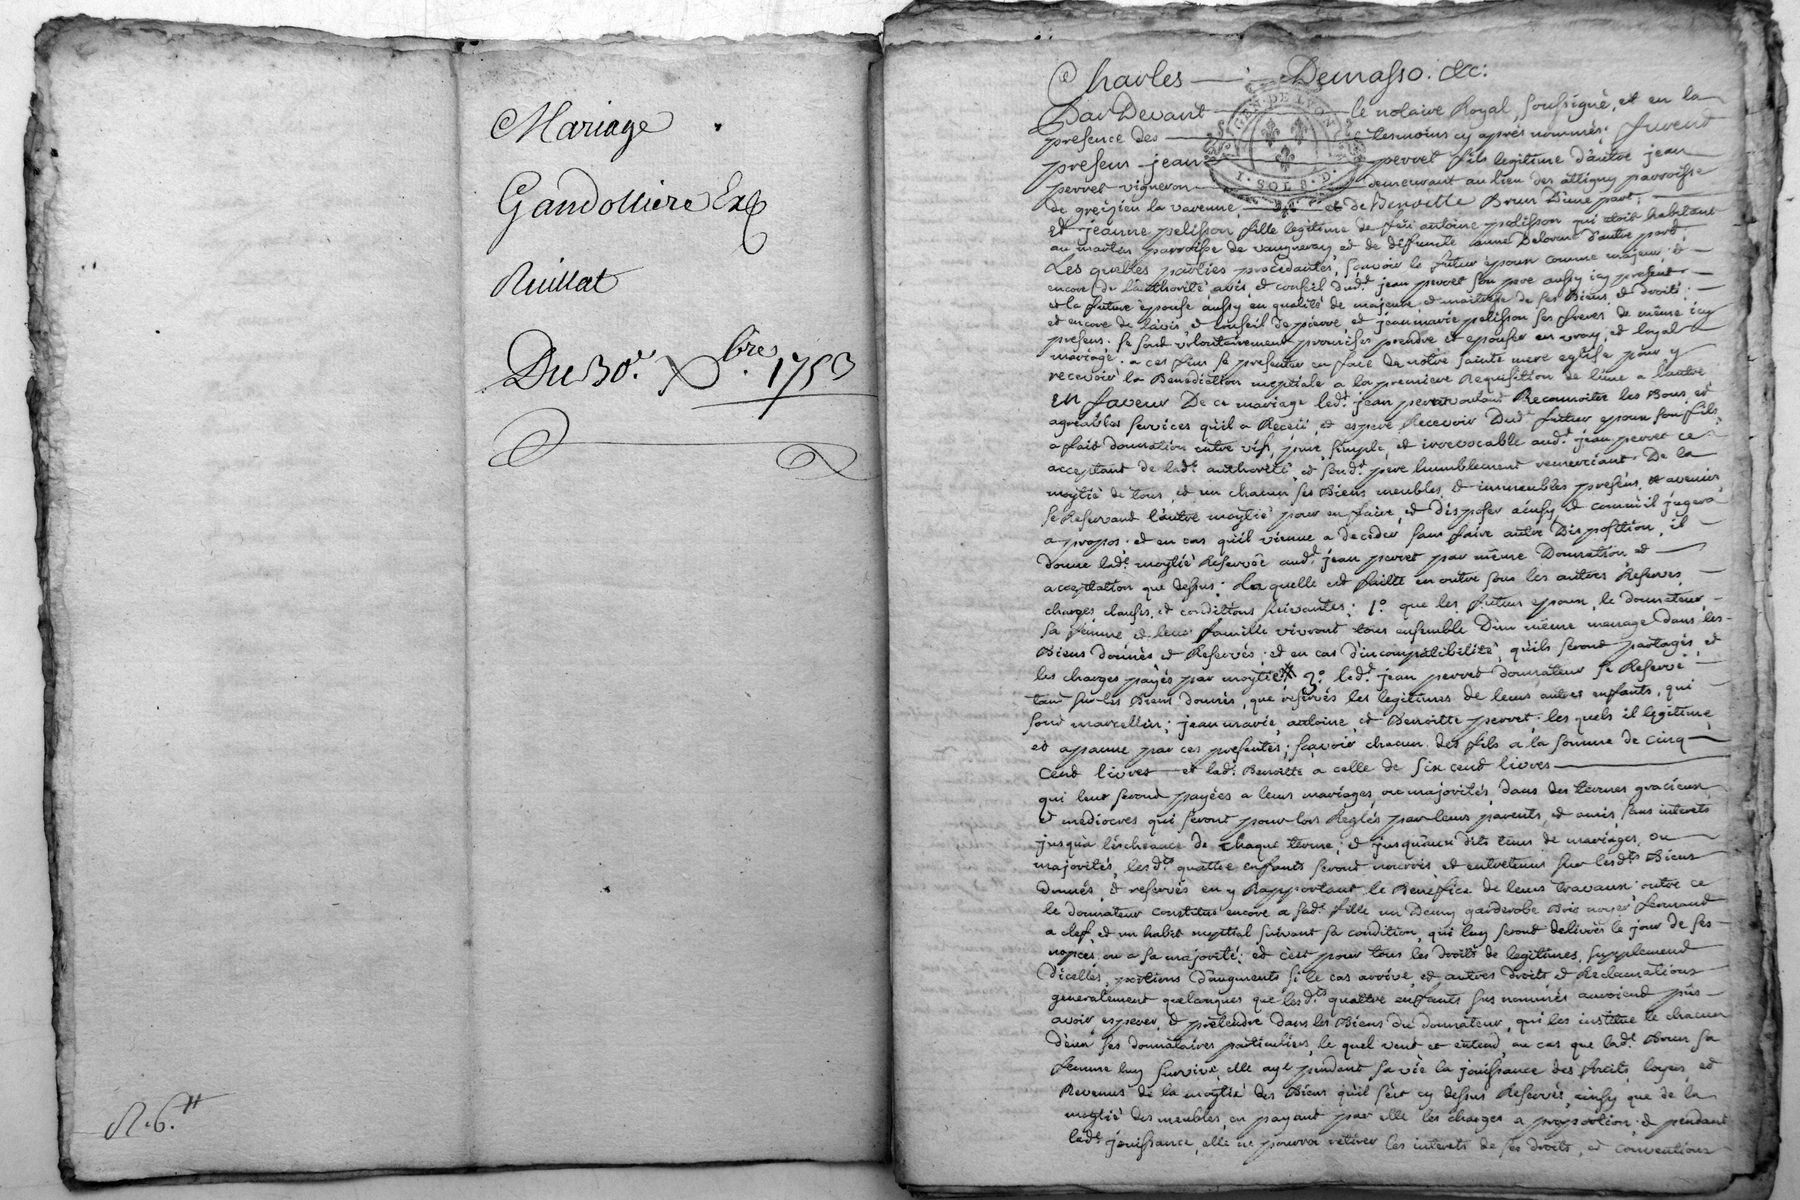 Mariage
Gandolliere Ex
Ruillat
Du 30.e Xbre. 1753
R. 6.tt
Charles Demasso. &c:
Par Devant le notaire Royal, soussigné, et en la
presence des tesmoins cy aprés nommés. furent
presens jean perret fils legitime d'autre jean
perret vigneron demeurant au lieu des attigny parroisse
de grezieu la varenne, et de Benoitte Brun D'une part;
Et jeanne pelisson fille legitime de feu antoine pelisson qui étoit habitant
au martin parroisse de vaugneray, et de deffunte anne Delorme d'autre part.
Les quelles parties procedantes, sçavoir le futur epoux comme majeur, et
encore de l'authorité avis et conseil dud.t jean perret son pere aussy icy present
et la future épouse aussy en qualité de majeure et maitresse de ses Biens et droits;
et encore de l'avis, et conseil de pierre et jean marie pelisson ses freres de même icy
presens. se sont volontairement promis se prendre et epouser en vray, et loyal
mariage. a ces fins se presenter en face de notre sainte mere eglise pour y
recevoir la Benediction nuptiale a la premiere Requisition de l'une a l'autre
EN faveur De ce mariage led.t jean perret voulant Reconnoitre les Bons, et
agréables services qu'il a Receü et espere Recevoir Dud.t futur epoux son fils
a fait donnation entre vifs, pure, simple, et irrevocable aud.t jean perret ce
acceptant de lad.e authorité, et sond.t pere humblement remerciant. De la
moytié de tous, et un chacun ses Biens meubles, et immeubles presens, et avenir,
se Reservant l'autre moytié pour en faire, et disposer ainsy, et comm'il jugera
a propos. et en cas qu'il vienne a deceder sans faire autre Disposition, il
donne lad.e moytié Reservée aud.t jean perret par même Donnation et
acceptation que dessus; La quelle est faitte en outre sous les autres Reserves,
charges clauses, et conditions suivantes; 1.o que les futurs epoux, le donnateur,
sa femme et leur famille vivront tous ensemble D'un même menage dans les
Biens donnés et Reservés; et en cas d'incompatibilité, qu'ils seront partagés, et
les charges payés par moytié # 3.o led.t jean perret donnateur se Reserve
tant sur les Biens donnés, que reservés les legitimes de leurs autres enfants, qui
sont marcellin; jean marie, antoine, et Benoitte perret. les quels il legitime,
et apanne par ces presentes; sçavoir chacun des fils a la somme de cinq
cent livres et lad.e Benoitte a celle de six cent livres
qui leur seront payées a leurs mariages, ou majorités, dans des termes gracieux,
et mediocres qui seront pour lors Reglés par leurs parents, et amis, sans interets
jusqu'à l'escheance de chaque terme; et jusqu'aux dits tems de mariages, ou
majorités, les d.ts quattre enfants seront nourris et entretenus sur lesd.ts Biens
donnés, et reservés en y Rapportant le Benefice de leurs travaux. outre ce
le donnateur constitue encore a sad.e fille un Demy garderobe Bois noyer fermant
a clef, et un habit nuptial suivant sa condition, qui luy seront delivrés le jour de ses
nopces, ou a sa majorité; et c'est pour tous les droits de legitimes, supplement
d'icelles, portions d'augments si le cas arrive, et autres droits et Reclamations
generalement quelconques que lesd.ts quattre enfants sus nommés auroient pus
avoir, esperer, et prétendre dans les Biens du donnateur, qui les institue le chacun
d'eux ses donnataires particuliers, le quel veut et entend, au cas que lad.e Brun sa
femme luy survive, elle aye pendant sa vie la jouissance des fruits loyers, et
Revenus de la moytié des Biens qu'il s'est cy dessus Reservés, ainsy que de la
moytié des meubles, en payant par elle les charges a proportion. et pendant
lad.e jouissance, elle ne pourra retirer les interets de ses droits, et conventions